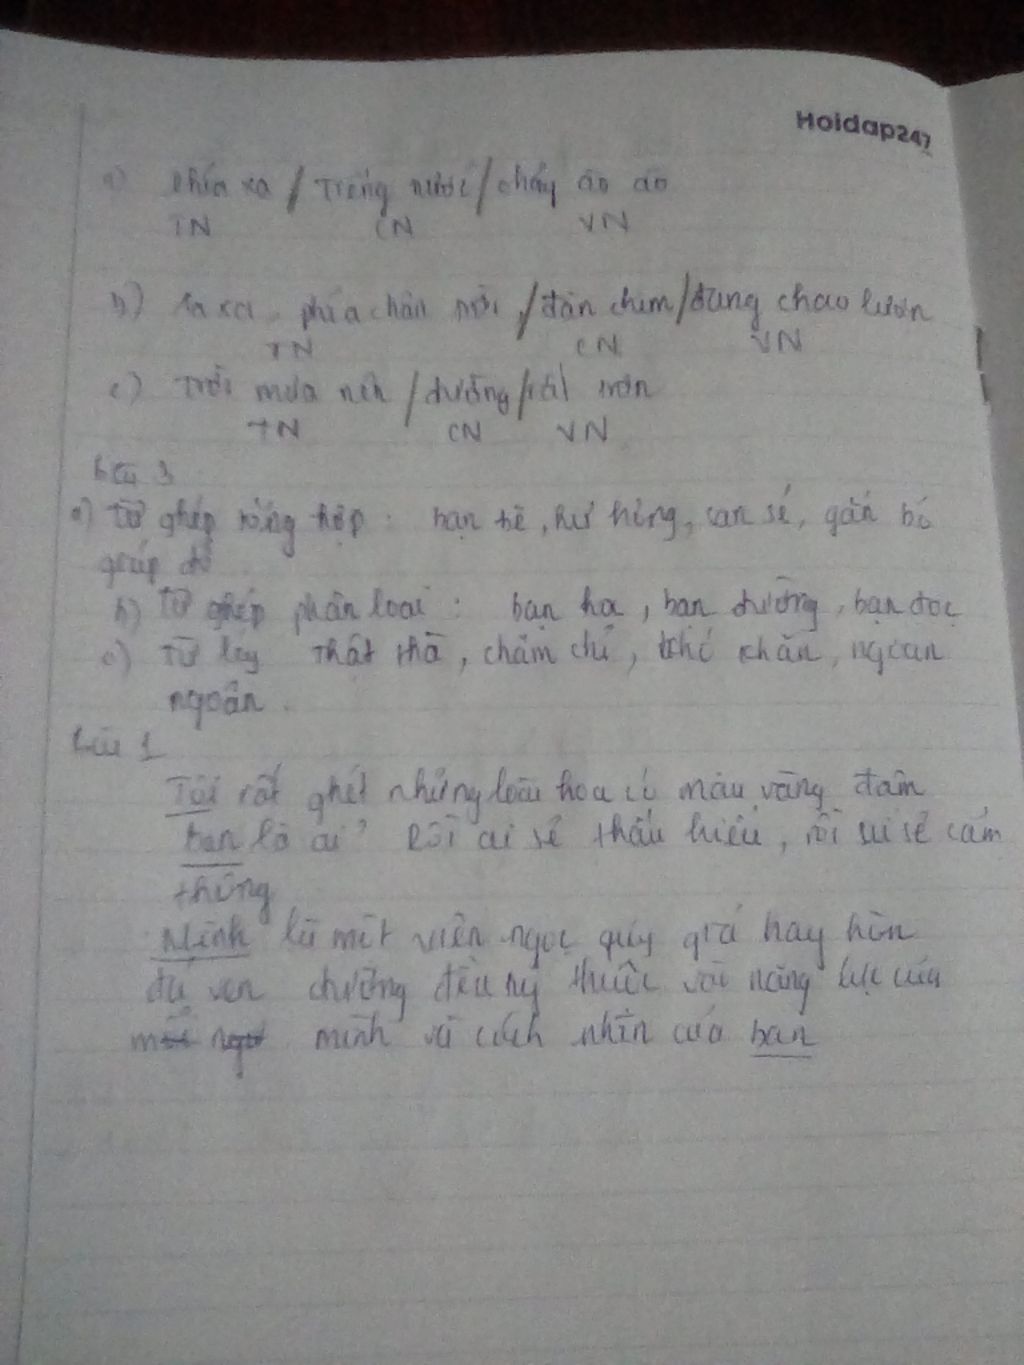 Hoidap247
a) Phía xa / Tiếng nước / chảy ào ào
TN CN VN
b) Xa xa, phía chân trời, / đàn chim / đang chao lượn
TN CN VN
c) Trời mưa nên / đường / rất trơn
TN CN VN
bài 3
a) Từ ghép tổng hợp: bạn bè, hư hỏng, san sẻ, gắn bó
giúp đỡ
b) Từ ghép phân loại: bạn học, bạn đường, bạn đọc
c) Từ láy thật thà, chăm chỉ, khó khăn, ngoan
ngoãn.
bài 1
Tôi rất ghét những loài hoa có màu vàng đậm
bạn là ai? Rồi ai sẽ thấu hiểu, rồi ai sẽ cảm
thông
Mình là một viên ngọc quý giá hay hòn
đá ven đường đều tùy thuộc vào năng lực của
mình và cách nhìn của bạn